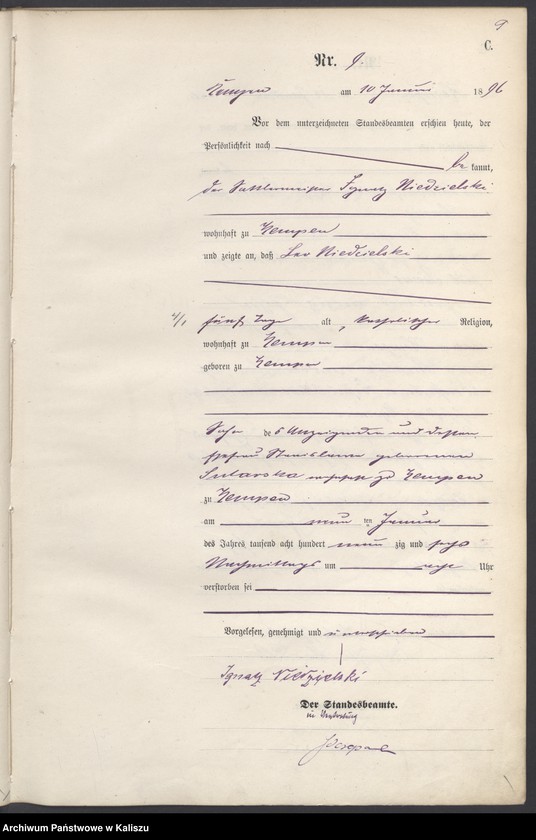 9
C.
Nr. 9.
Kempen am 10 Januar 1896
Vor dem unterzeichneten Standesbeamten erschien heute, der
Persönlichkeit nach be kannt,
der Sattlermeister Ignatz Niedzielski
wohnhaft zu Kempen
und zeigte an, daß Leo Niedzielski
4/1 fünf Tage alt, katholischer Religion,
wohnhaft zu Kempen
geboren zu Kempen
Sohn des Anzeigenden und dessen
Ehefrau Stanislawa geborenen
zu Kempen
zu Kempen
am neun ten Januar
des Jahres tausend acht hundert neun zig und sechs
Nachmittags um acht Uhr
verstorben sei
Vorgelesen, genehmigt und unterschrieben
Ignatz Niedzielski
Der Standesbeamte.
in Vertretung
Archiwum Państwowe w Kaliszu